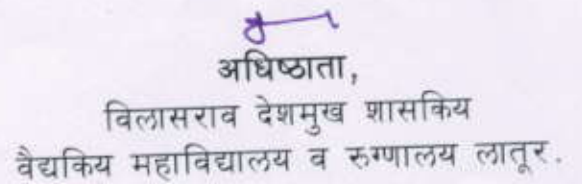 अधिष्ठाता,
विलासराव देशमुख शासकिय
वैद्यकिय महाविद्यालय व रुग्णालय लातूर.